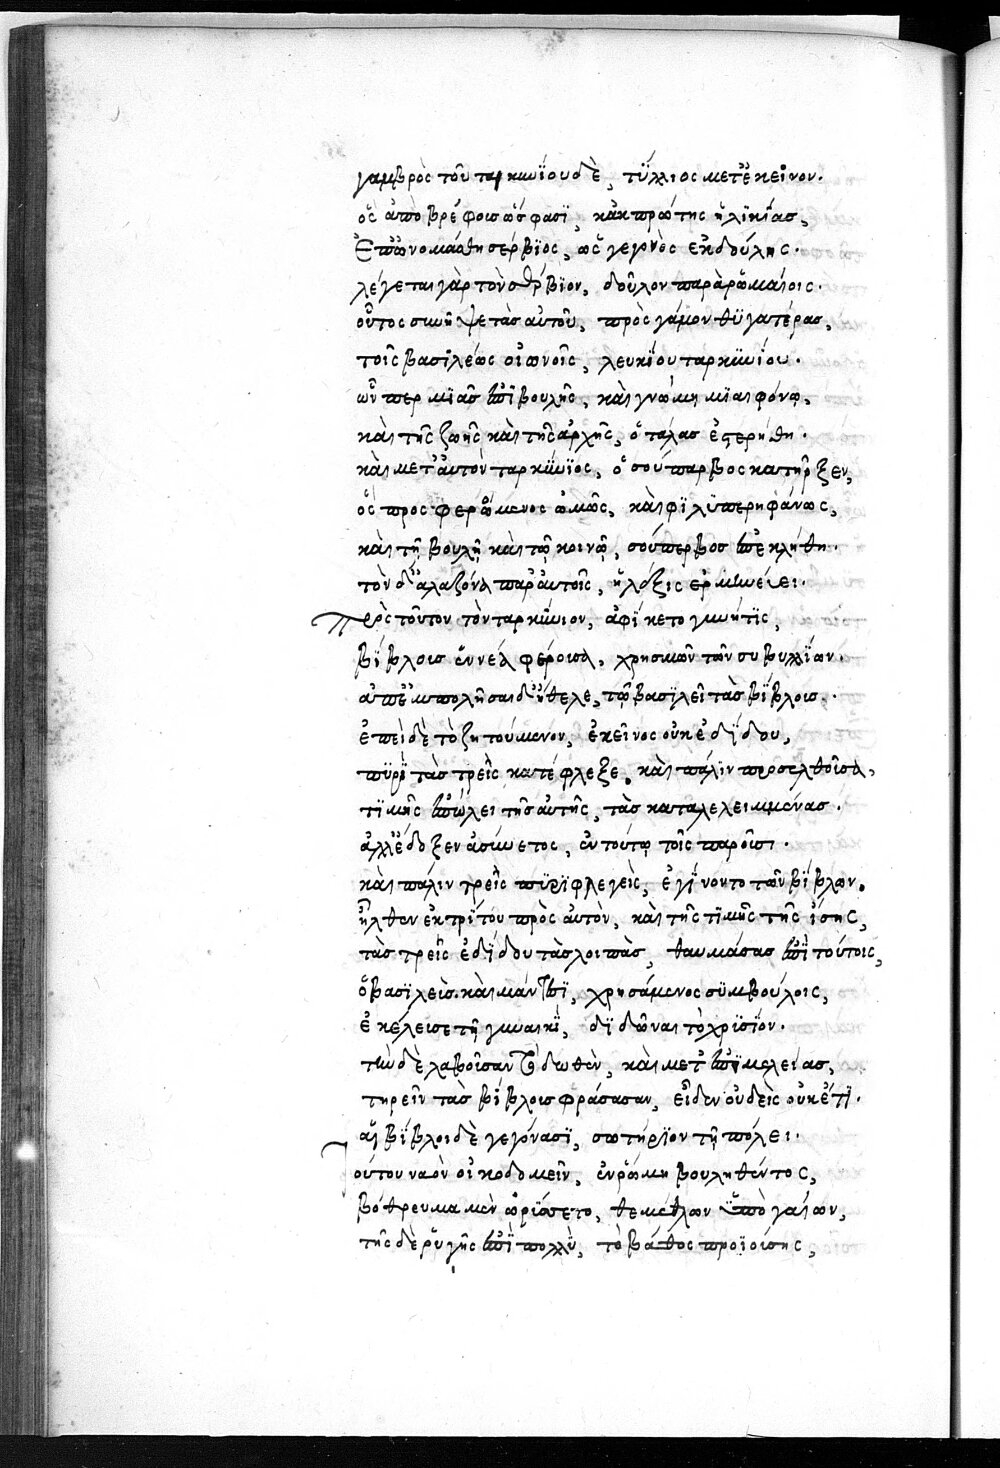 γαμβρὸς τοῦ ταρκυνίου δὲ, τύλλιος μετ' ἐκεῖνον.
ὃς ἀπὸ βρέφους ὥς φασι, κἀκ πρώτης ἡλικίας,
ἐπωνομάσθη σέρβιος, ὡς γεγονὼς ἐκ δούλης.
λέγεται γὰρ τὸν σέρβιον, δοῦλον παρὰ ῥωμαίοις.
οὗτος συνῆψε τὰς αὐτοῦ, πρὸς γάμον θυγατέρας,
τοῖς βασιλέως υἱωνοῖς, λευκίου ταρκυνίου.
ὧνπερ μιᾶς ἐπιβουλῆς, καὶ γνώμῃ μιαιφόνῳ,
καὶ τῆς ζωῆς καὶ τῆς ἀρχῆς, ὁ τάλας ἐστερήθη.
καὶ μετ' αὐτὸν ταρκύνιος, ὁ σούπαρβος κατῆρξεν,
ὃς προσφερόμενος ὠμῶς, καὶ φιλυπερηφάνως,
καὶ τῇ βουλῇ καὶ τῷ κοινῷ, σούπερβος ἐπεκλήθη.
τὸν δ' ἀλαζόνα παρ' αὐτοῖς, ἡ λέξις ἑρμηνεύει.
Πρὸς τοῦτον τὸν ταρκύνιον, ἀφίκετο γυνή τις,
βίβλους ἐννέα φέρουσα, χρησμῶν τῶν συβυλλίων.
ἀπεμπολῆσαι δ' ἤθελε, τῷ βασιλεῖ τὰς βίβλους.
ἐπεὶ δὲ τὸ ζητούμενον, ἐκεῖνος οὐκ ἐδίδου,
πυρὶ τὰς τρεῖς κατέφλεξε. καὶ πάλιν προσελθοῦσα,
τιμῆς ἐπώλει τῆς αὐτῆς, τὰς καταλελειμμένας.
ἀλλ' ἔδοξεν ἀσύνετος, ἐν τούτῳ τοῖς παροῦσι.
καὶ πάλιν τρεῖς πυριφλεγεῖς, ἐγίνοντο τῶν βίβλων.
ἦλθεν ἐκ τρίτου πρὸς αὐτὸν, καὶ τῆς τιμῆς τῆς ἴσης,
τὰς τρεῖς ἐδίδου τὰς λοιπὰς, θαυμάσας ἐπὶ τούτοις,
ὁ βασιλεὺς. καὶ μάντεσι, χρησάμενος συμβούλοις,
ἐκέλευσε τῇ γυναικὶ, διδῶναι τὸ χρυσίον.
τὴν δὲ λαβοῦσαν τὸ δοθὲν, καὶ μετ' ἐπιμελείας,
τηρεῖν τὰς βίβλους φράσασαν, εἶδεν οὐδεὶς οὐκέτι.
αἱ βίβλοι δὲ γεγόνασι, σωτήριον τῇ πόλει.
Τούτου ναὸν οἰκοδομεῖν, ἐν ῥώμῃ βουληθέντος,
βόθρευμα μὲν ὠρύσσετο, θεμέθλων ὑπὸ γαίων,
τῆς δὲ ῥυγῆς ἐπὶ πολὺ, τὸ βάθος προϊούσης,